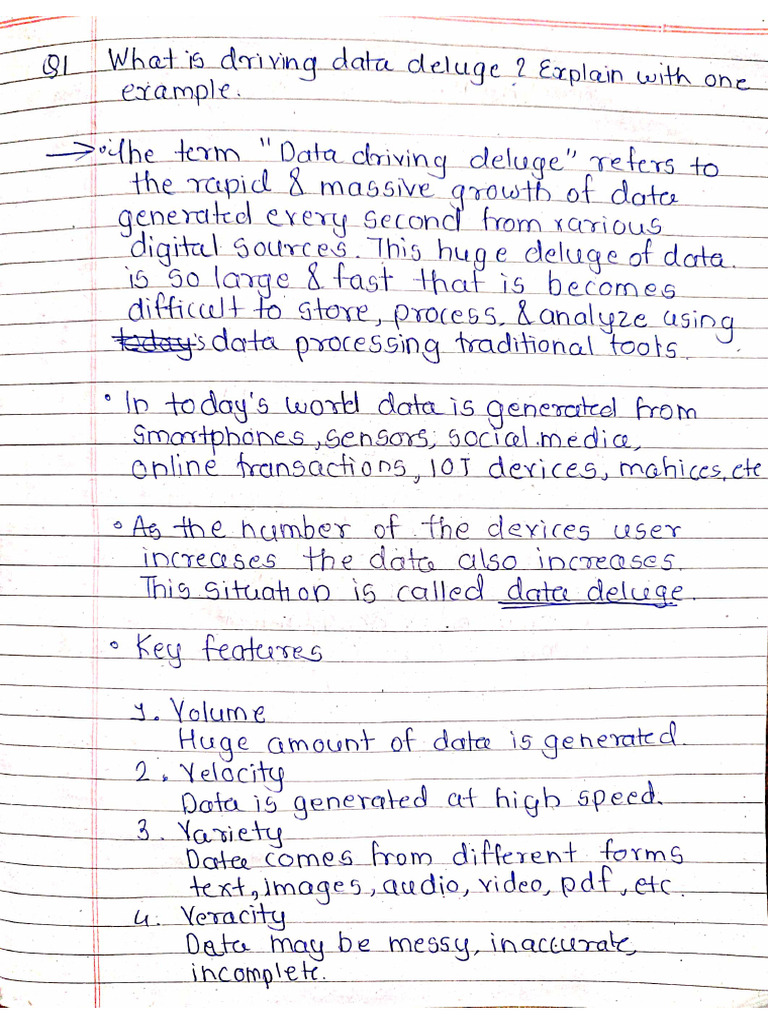 Q1 What is driving data deluge? Explain with one
example.
→ • The term "Data driving deluge" refers to
the rapid & massive growth of data
generated every second from various
digital sources. This huge deluge of data
is so large & fast that is becomes
difficult to store, process, & analyze using
today's data processing traditional tools.
• In today's world data is generated from
smartphones, sensors, social media,
online transactions, IOT devices, mahices, etc
• As the number of the devices user
increases the data also increases.
This situation is called data deluge.
• Key features
1. Volume
Huge amount of data is generated.
2. Velocity
Data is generated at high speed.
3. Variety
Data comes from different forms
text, images, audio, video, pdf, etc.
4. Veracity
Data may be messy, inaccurate,
incomplete.